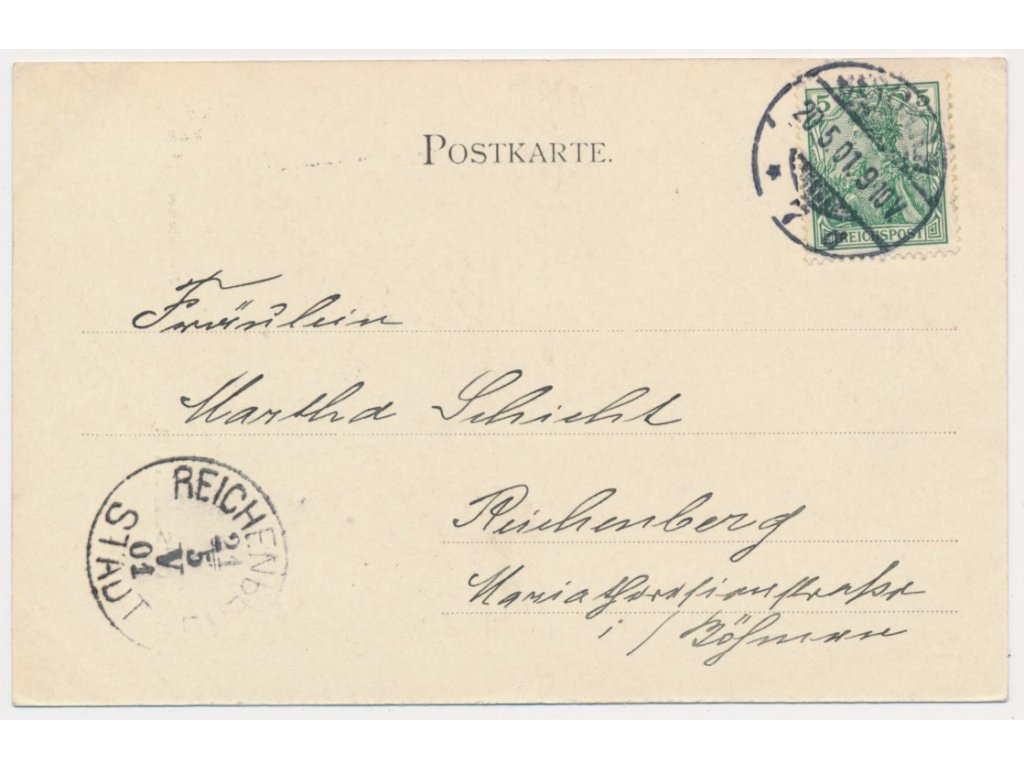 POSTKARTE.
5 5
20.5.01.9-10V
REICHSPOST
Fräulein
Martha Schicht
REICHENBERG
STADT
21
5
V
01
Reichenberg
Mariatheresienstraße
i/Böhmen